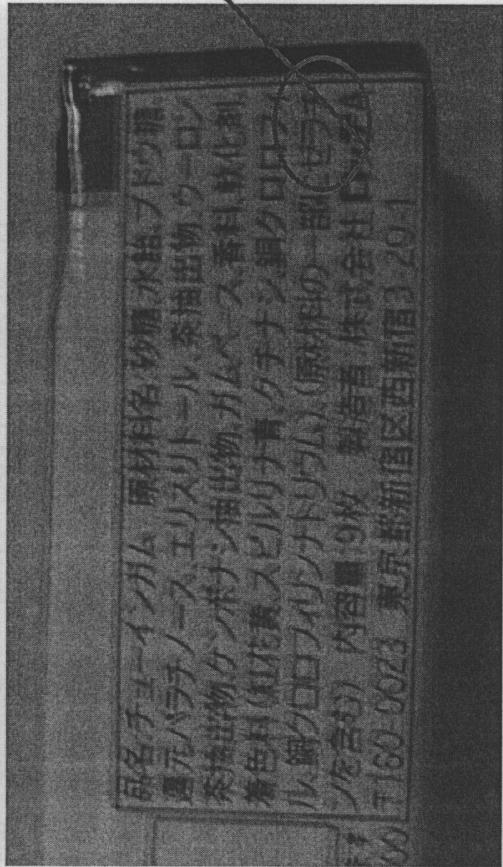 品名 チューインガム 原材料名 砂糖、水飴、ブドウ糖、
還元パラチノース、エリスリトール、茶抽出物、ウーロン
茶抽出物、ケンポナシ抽出物、ガムベース、香料、軟化剤、
着色料(紅花黄、スピルリナ青、クチナシ、銅クロロフィ
ル、銅クロロフィリンナトリウム)、(原材料の一部にゼラチ
ンを含む) 内容量 9枚 製造者 株式会社ロッテA
〒160-0023 東京都新宿区西新宿3-20-1